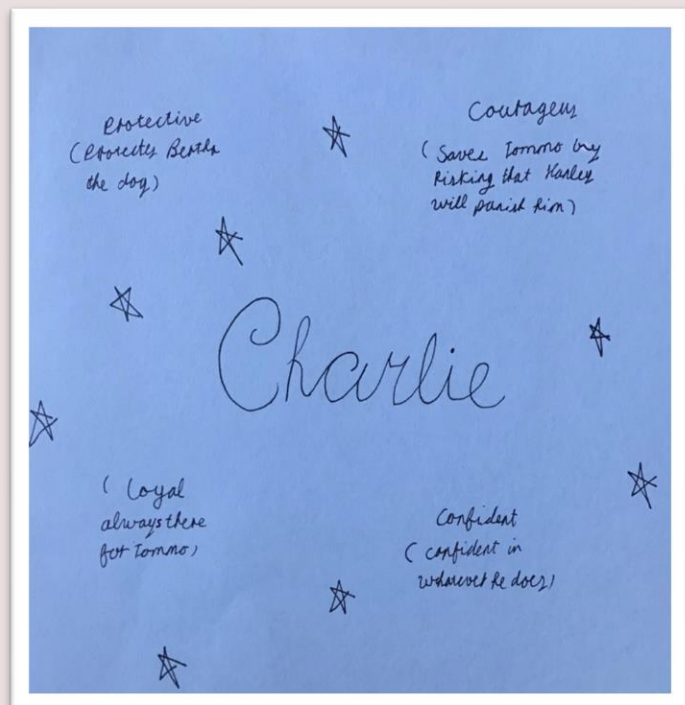 Protective
(Protects Bertha
the dog)
Courageus
(Saves Tommo by
Risking that Hanley
will punish him)
Charlie
(Loyal
always there
for Tommo)
Confident
(confident in
whatever he does)